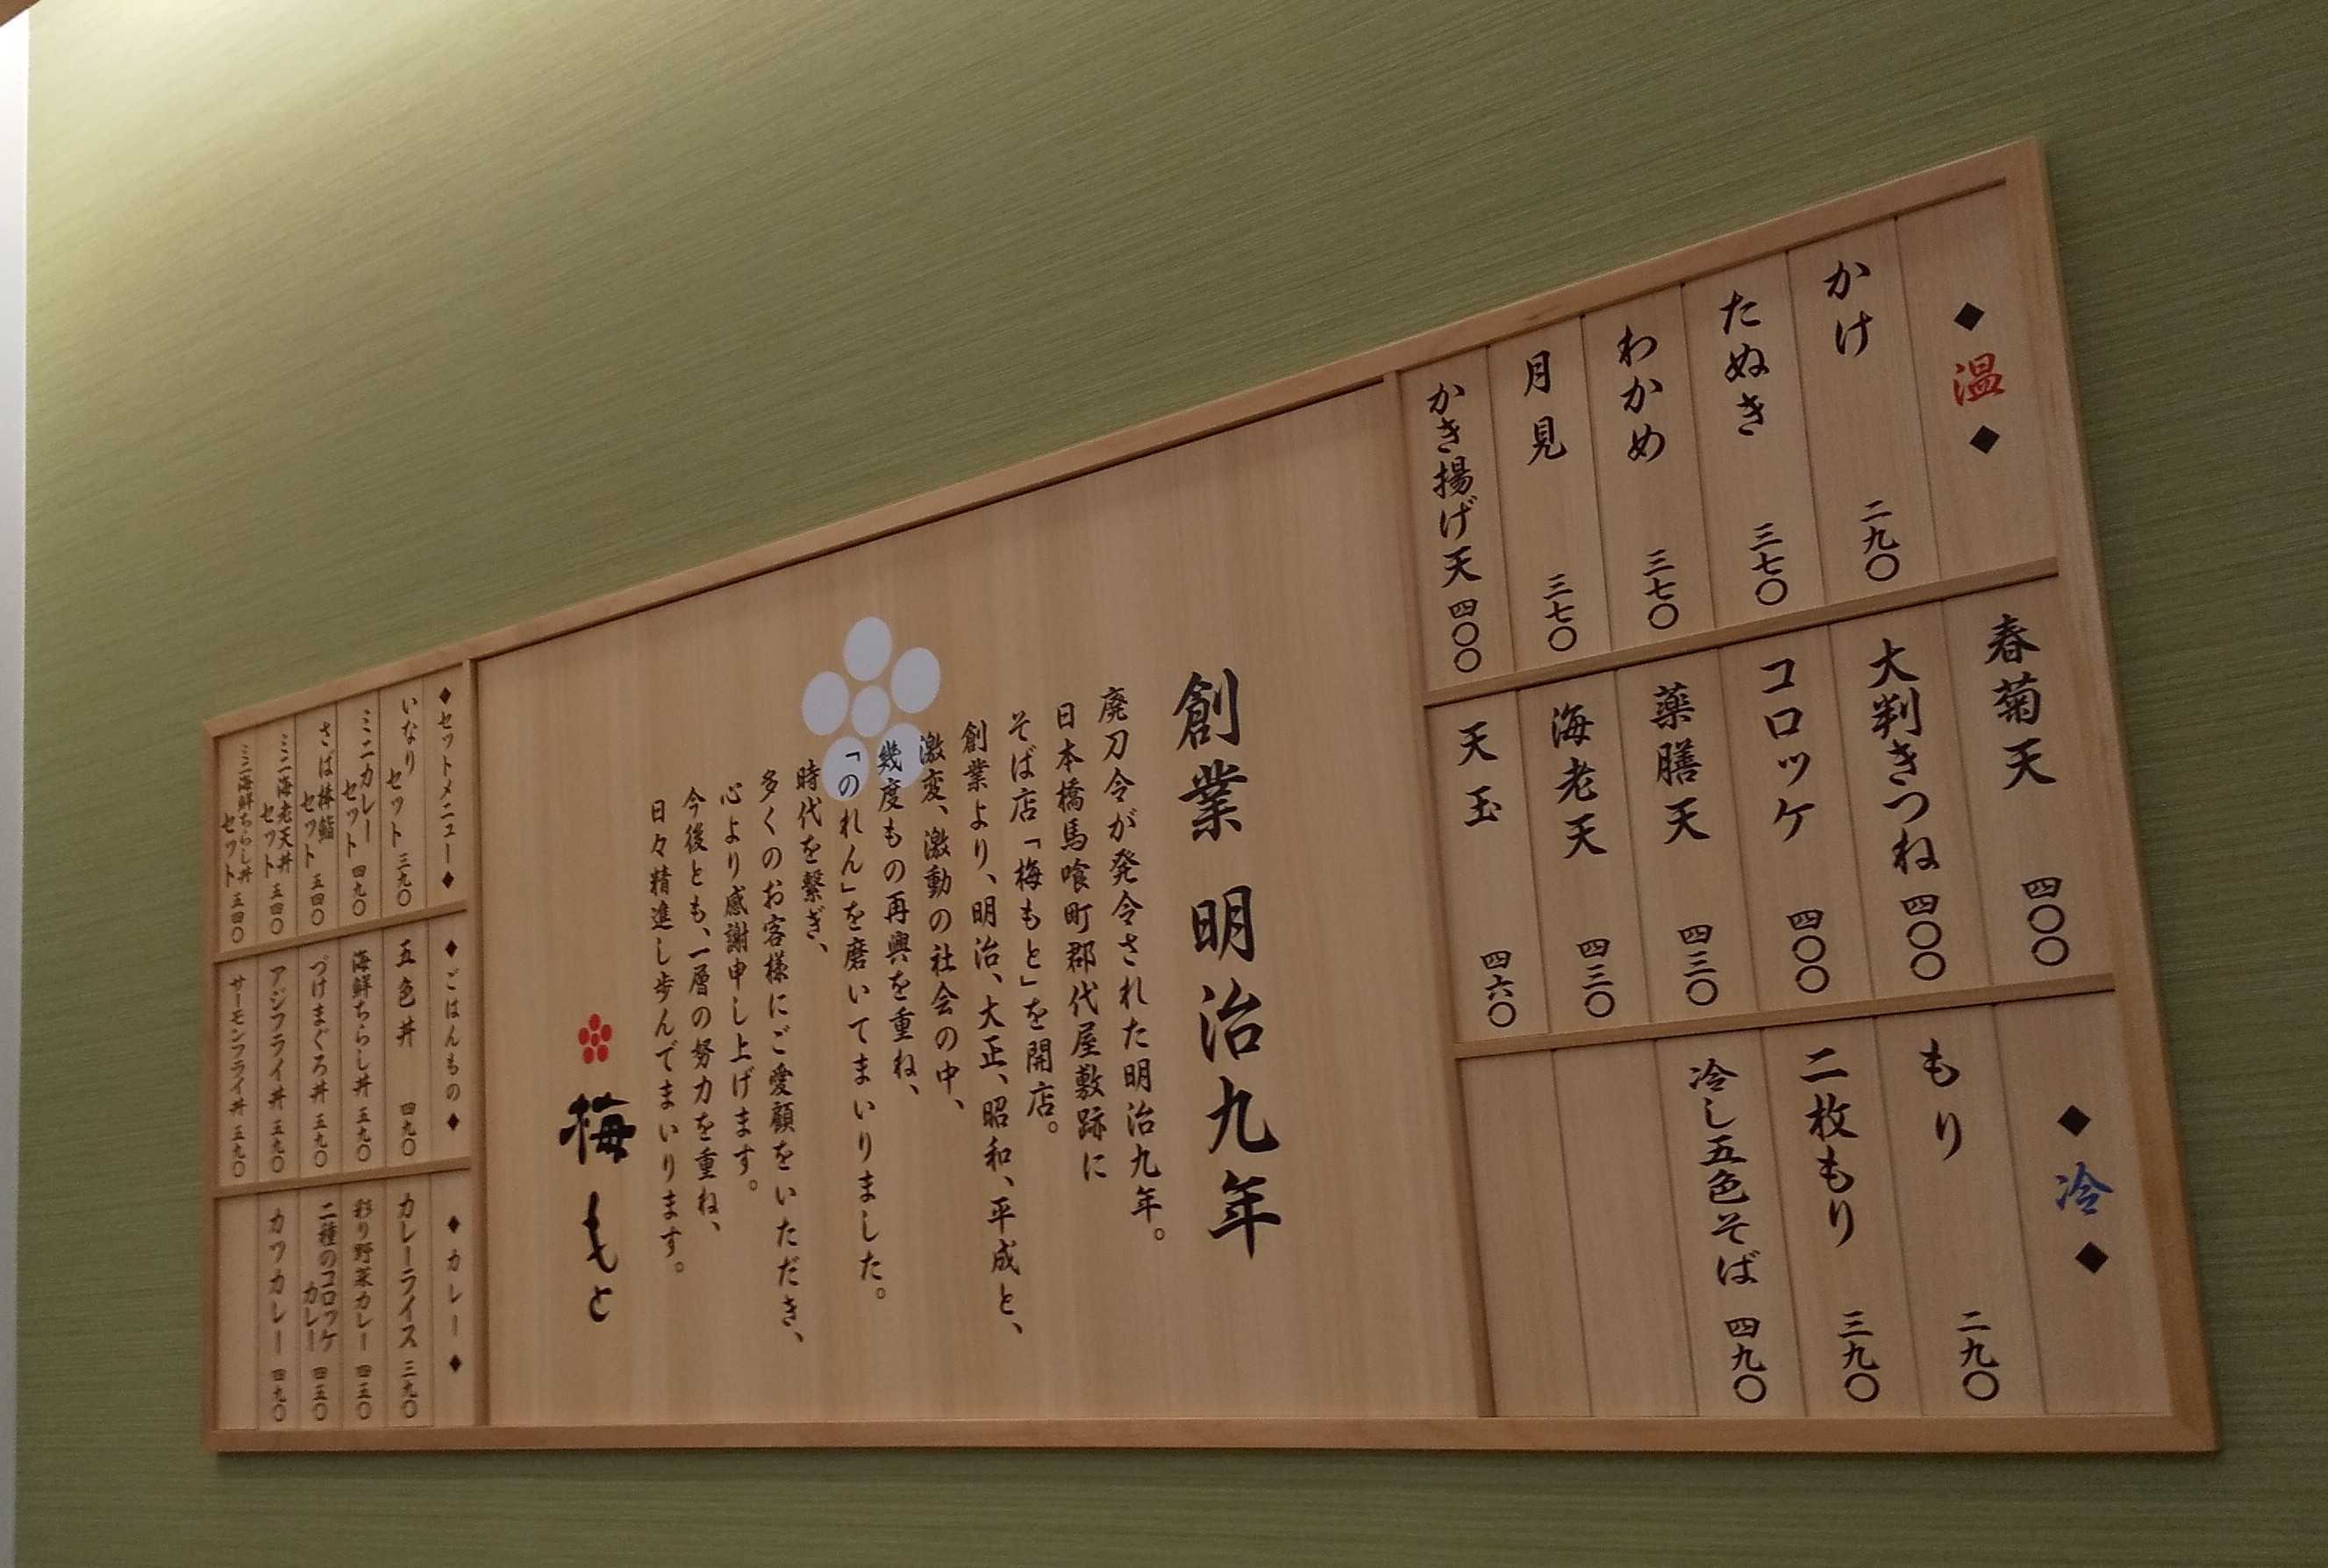 ◆温◆
かけ 二九〇
たぬき 三七〇
わかめ 三七〇
月見 三七〇
かき揚げ天 四〇〇
春菊天 四〇〇
大判きつね 四〇〇
コロッケ 四〇〇
薬膳天 四三〇
海老天 四三〇
天玉 四六〇
◆冷◆
もり 二九〇
二枚もり 三九〇
冷し五色そば 四九〇
創業 明治九年
廃刀令が発令された明治九年。
日本橋馬喰町郡代屋敷跡に
そば店「梅もと」を開店。
創業より、明治、大正、昭和、平成と、
激変、激動の社会の中、
幾度もの再興を重ね、
「のれん」を磨いてまいりました。
時代を繋ぎ、
多くのお客様にご愛顧をいただき、
心より感謝申し上げます。
今後とも、一層の努力を重ね、
日々精進し歩んでまいります。
梅もと
◆セットメニュー◆
いなり
セット 三九〇
ミニカレー
セット 四九〇
さば棒鮨
セット 五四〇
ミニ海老天丼
セット 五四〇
ミニ海鮮ちらし丼
セット 五四〇
◆ごはんもの◆
五色丼 四九〇
海鮮ちらし丼 五九〇
づけまぐろ丼 五九〇
アジフライ丼 五九〇
サーモンフライ丼 五九〇
◆カレー◆
カレーライス 三九〇
彩り野菜カレー 四五〇
二種のコロッケ
カレー 四五〇
カツカレー 四九〇